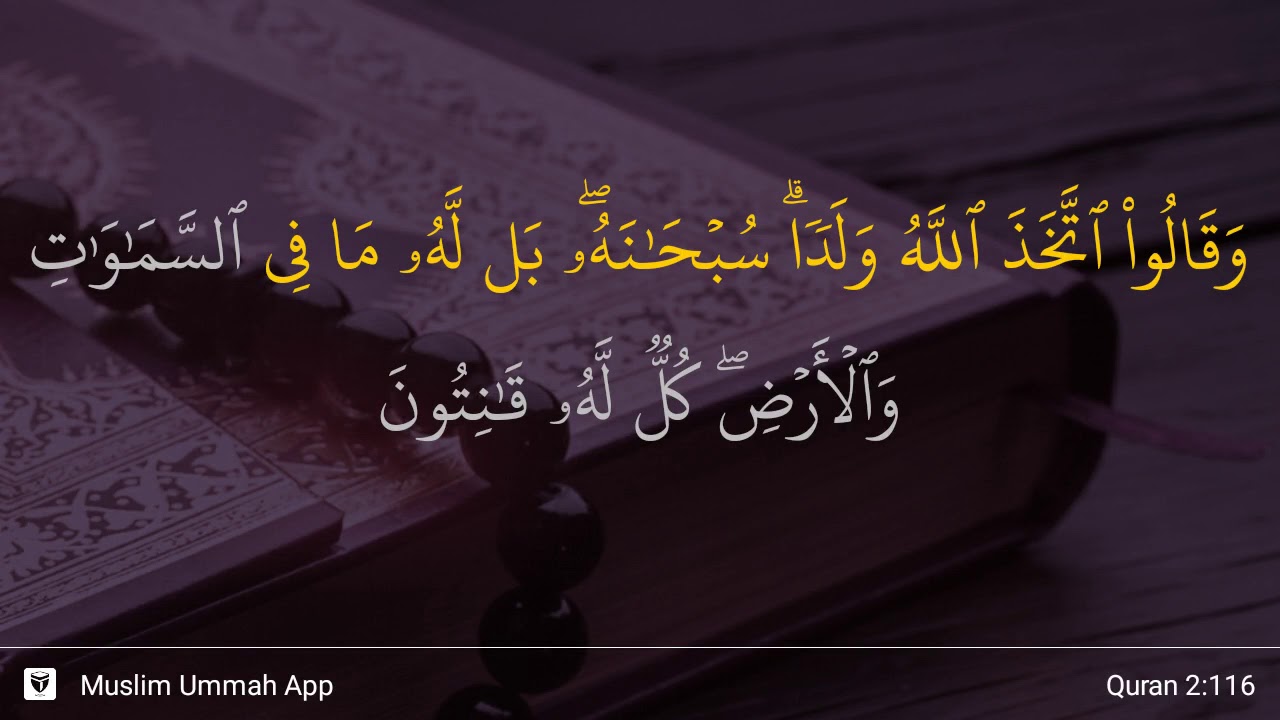 وَقَالُوا۟ ٱتَّخَذَ ٱللَّهُ وَلَدًا ۗ سُبْحَـٰنَهُۥ ۖ بَل لَّهُۥ مَا فِى ٱلسَّمَـٰوَٰتِ
وَٱلْأَرْضِ ۖ كُلٌّ لَّهُۥ قَـٰنِتُونَ
Muslim Ummah App
Quran 2:116